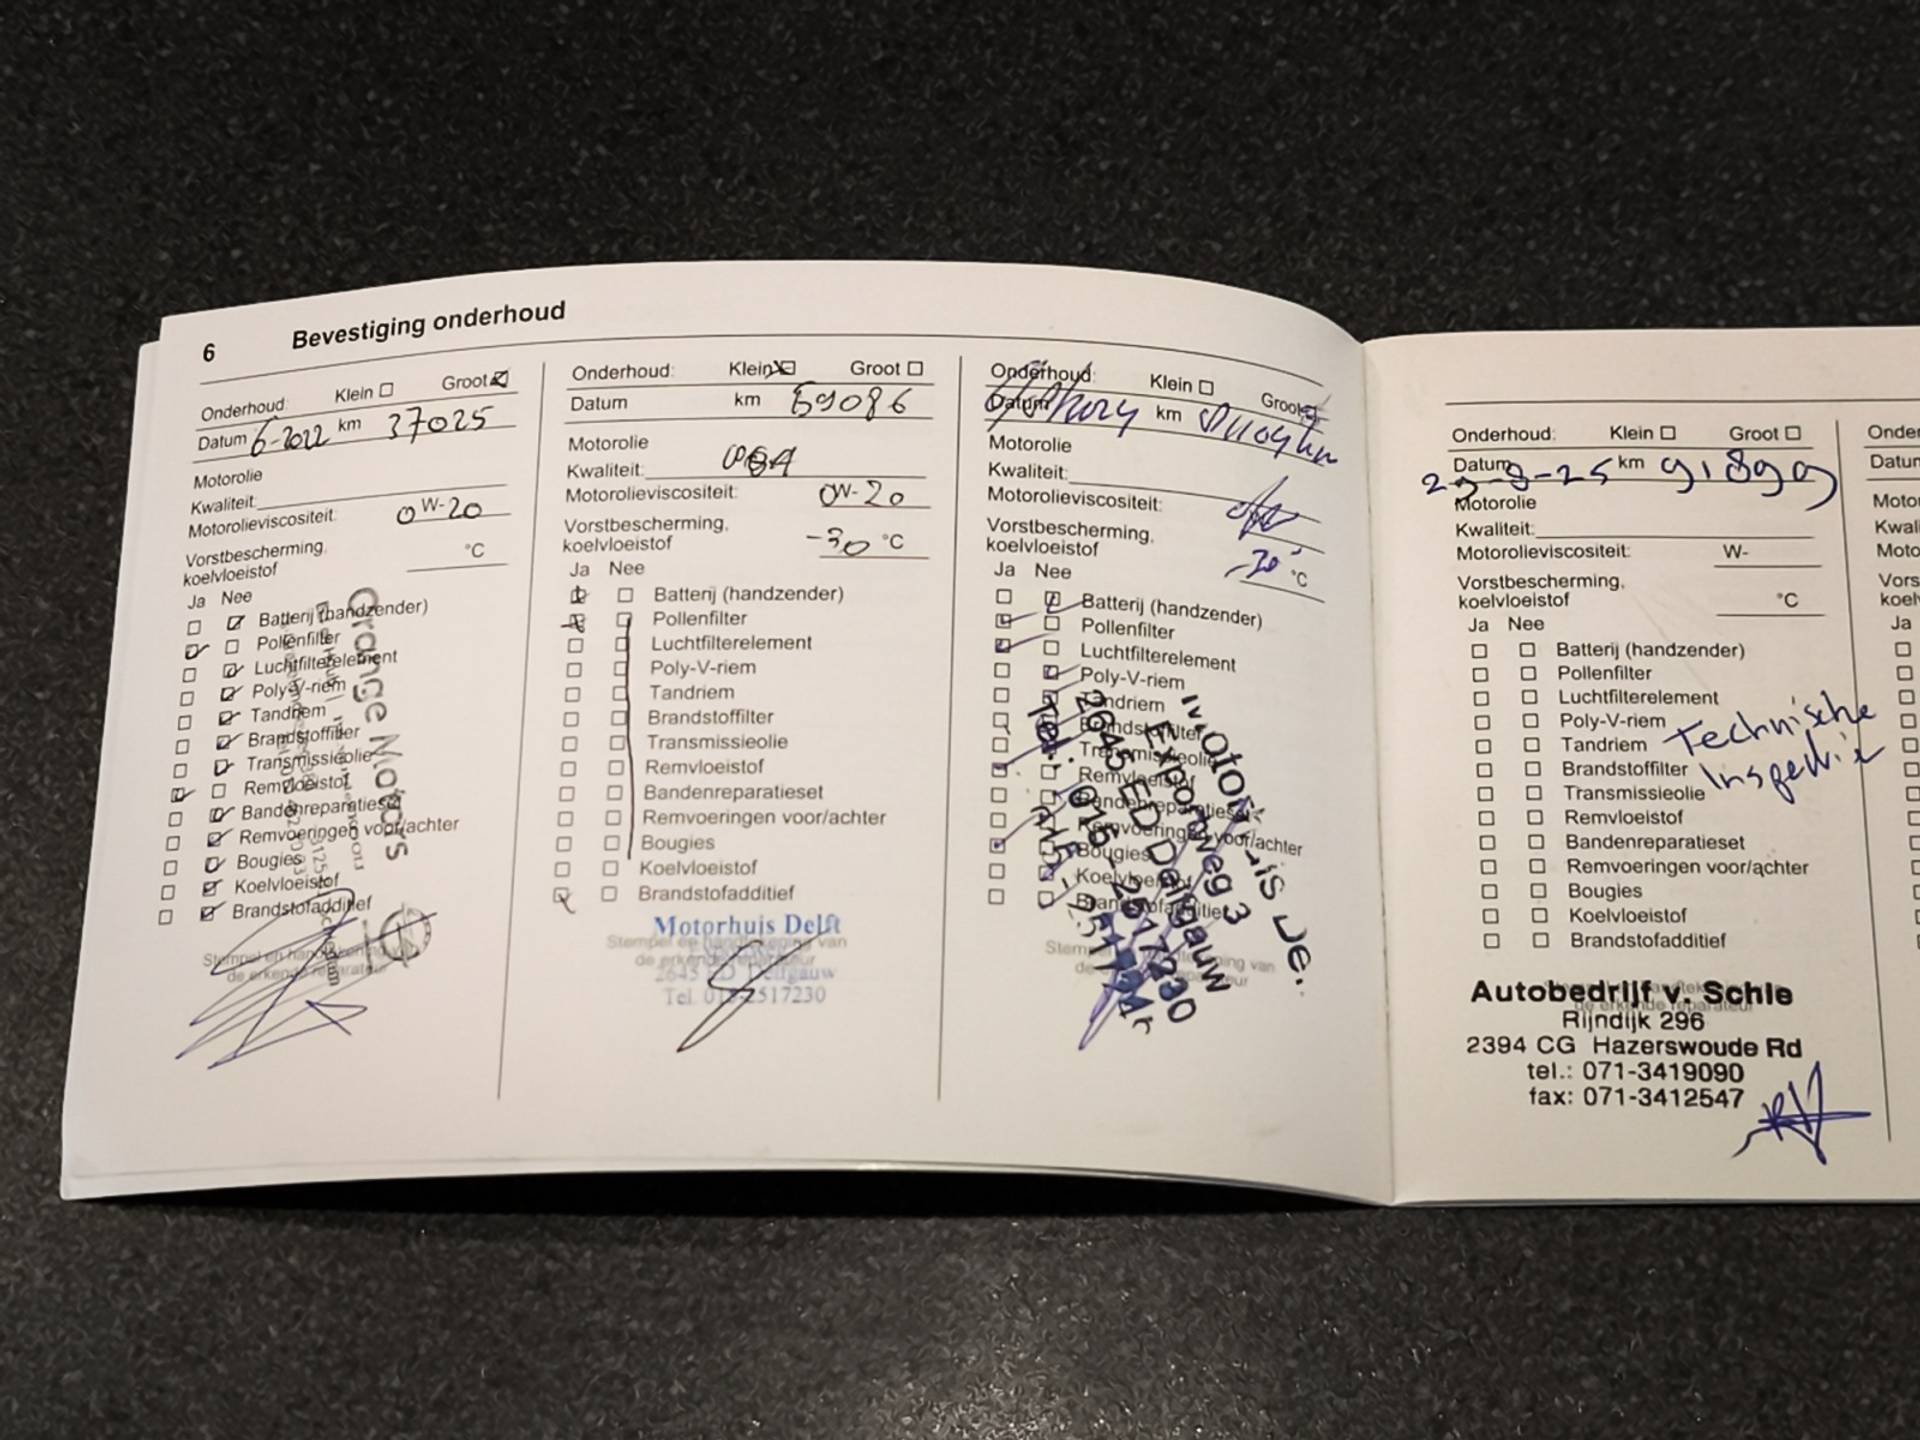 6 Bevestiging onderhoud
Onderhoud: Klein Groot
Datum 6-2022 km 37025
Motorolie
Kwaliteit:
Motorolieviscositeit: 0W-20
Vorstbescherming,
koelvloeistof °C
Ja Nee
Batterij (handzender)
Pollenfilter
Luchtfilterelement
Poly-V-riem
Tandriem
Brandstoffilter
Transmissieolie
Remvloeistof
Bandenreparatieset
Remvoeringen voor/achter
Bougies
Koelvloeistof
Brandstofadditief
Stempel en handtekening van
de erkende reparateur
Grange Motors
Onderhoud: Klein Groot
Datum km 59086
Motorolie
Kwaliteit:
Motorolieviscositeit: 0W-20
Vorstbescherming,
koelvloeistof -30 °C
Ja Nee
Batterij (handzender)
Pollenfilter
Luchtfilterelement
Poly-V-riem
Tandriem
Brandstoffilter
Transmissieolie
Remvloeistof
Bandenreparatieset
Remvoeringen voor/achter
Bougies
Koelvloeistof
Brandstofadditief
Stempel en handtekening van
de erkende reparateur
Motorhuis Delft
2645 ED Delfgauw
Tel. 015-2517230
Onderhoud: Klein Groot
Datum km
Motorolie
Kwaliteit:
Motorolieviscositeit:
Vorstbescherming,
koelvloeistof -30 °C
Ja Nee
Batterij (handzender)
Pollenfilter
Luchtfilterelement
Poly-V-riem
Tandriem
Brandstoffilter
Transmissieolie
Remvloeistof
Bandenreparatieset
Remvoeringen voor/achter
Bougies
Koelvloeistof
Brandstofadditief
Exportweg 3
2645 ED Delfgauw
Tel. 015-2517230
Onderhoud: Klein Groot
Datum km 91899
Motorolie
Kwaliteit:
Motorolieviscositeit: W-
Vorstbescherming,
koelvloeistof °C
Ja Nee
Batterij (handzender)
Pollenfilter
Luchtfilterelement
Poly-V-riem
Tandriem
Brandstoffilter
Transmissieolie
Remvloeistof
Bandenreparatieset
Remvoeringen voor/achter
Bougies
Koelvloeistof
Brandstofadditief
Technische
Inspectie
Autobedrijf v. Schie
de erkende reparateur
Rijndijk 296
2394 CG Hazerswoude Rd
tel.: 071-3419090
fax: 071-3412547
Onder
Datum
Motor
Kwali
Moto
Vors
koel
Ja